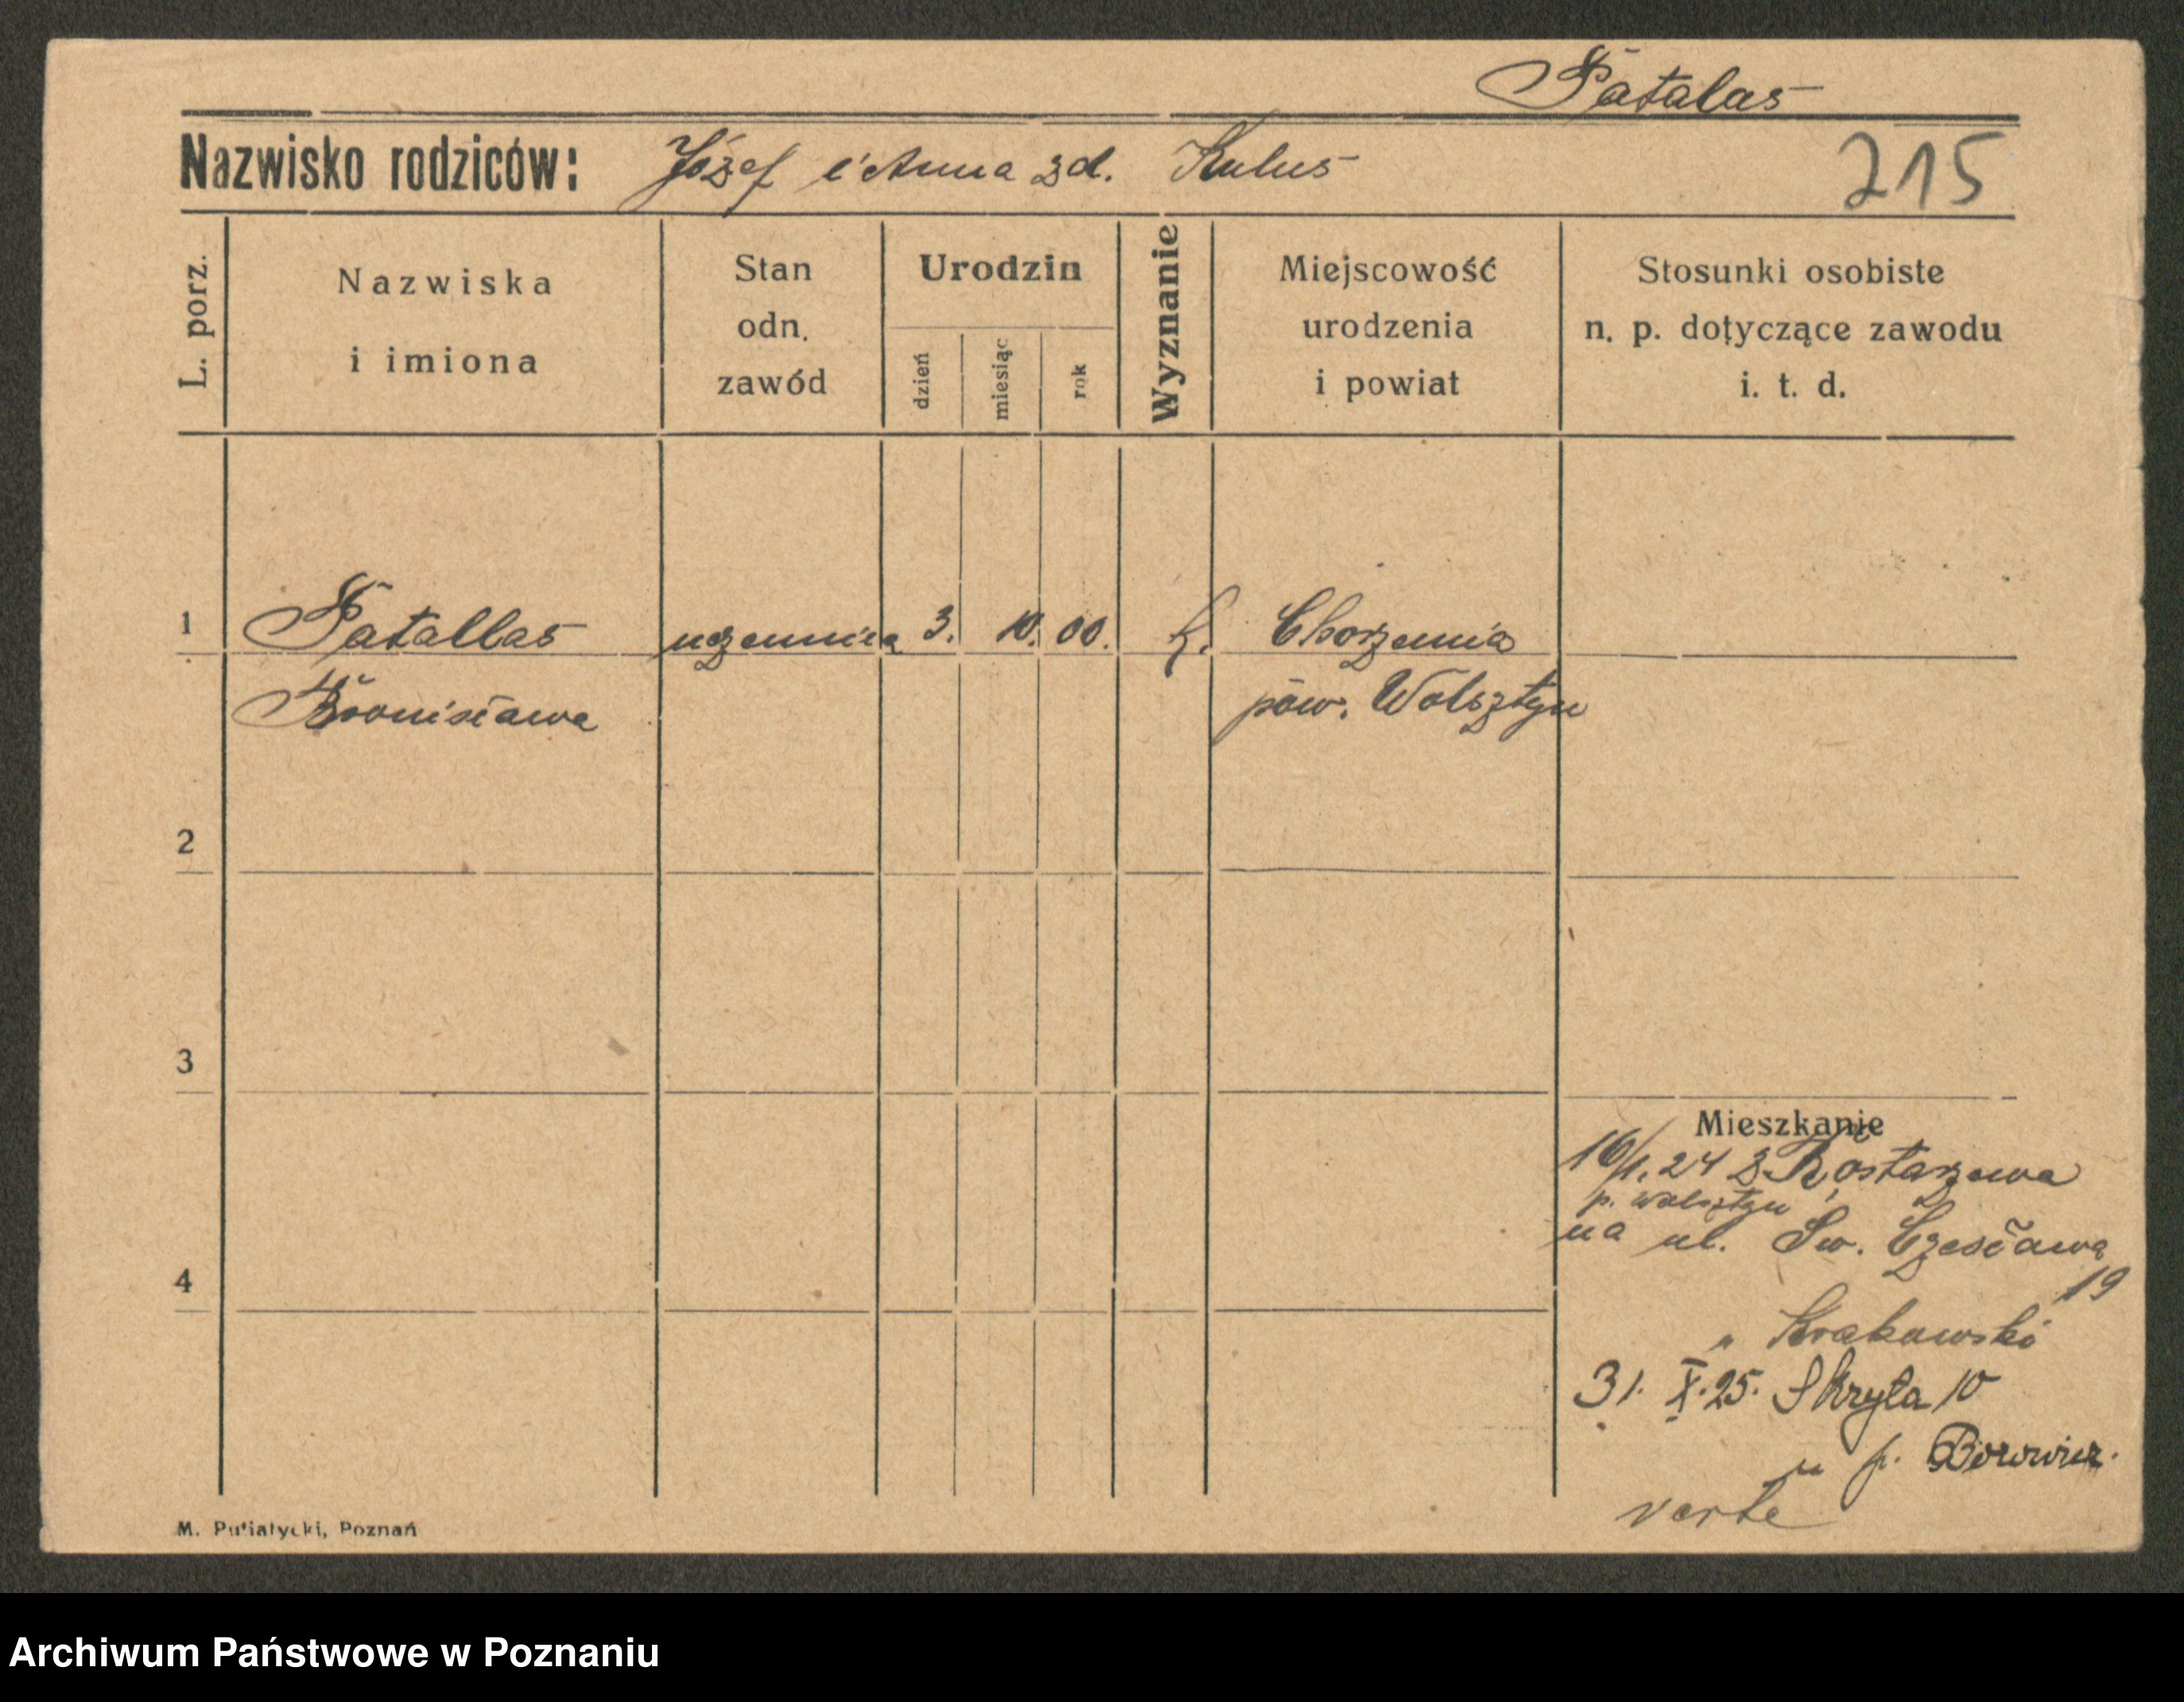 Patalas
Nazwisko rodziców: Józef i Anna zd. Kulus
215
L. porz.
Nazwiska
i imiona
Stan
odn.
zawód
Urodzin
dzień
miesiąc
rok
Wyznanie
Miejscowość
urodzenia
i powiat
Stosunki osobiste
n. p. dotyczące zawodu
i. t. d.
1 Patallas uczennica 3. 10. 00. k. Chorzemia
Bronisława pow. Wolsztyn
2
3
4
Mieszkanie
16/1. 24 z Rostarzewa
p. Wolsztyn
na ul. Św. Czesława
19
" Krakowski
31. X. 25. Skryta 10
u p. Borowicz.
verte
M. Putiatycki, Poznań
Archiwum Państwowe w Poznaniu